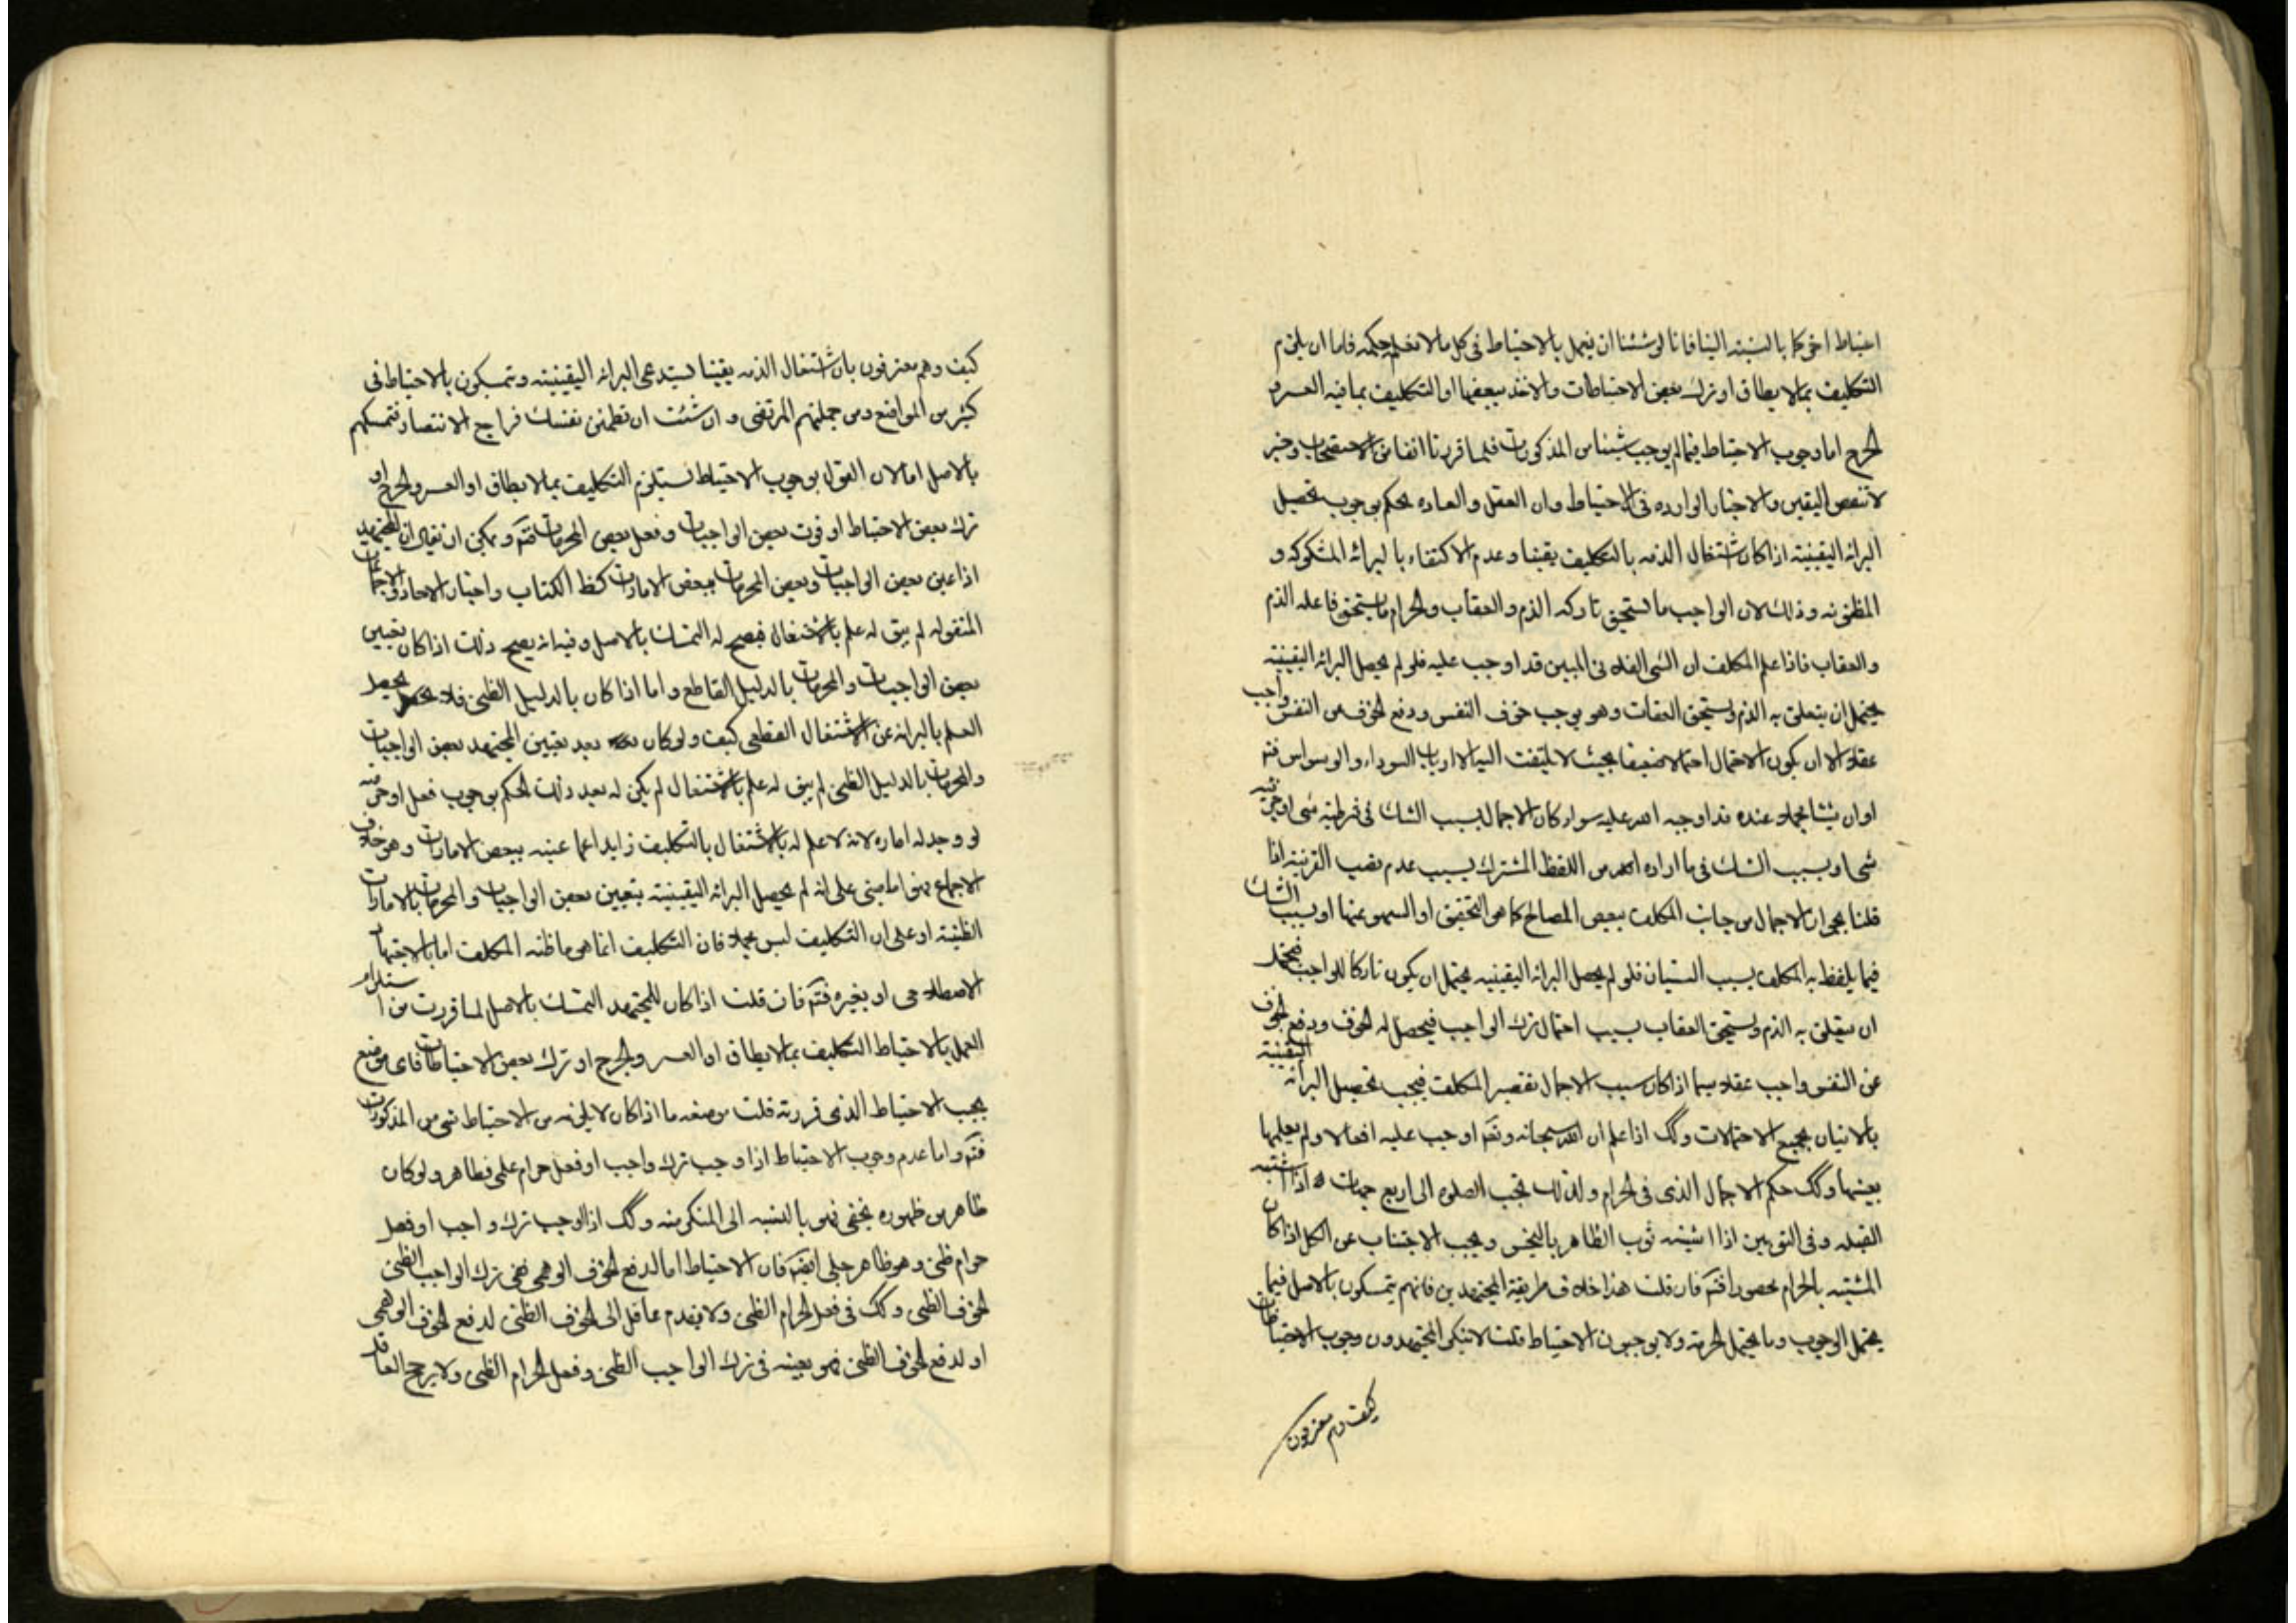 احتياط اخر كما بالنسبة الينا فانا لو شئنا ان نعمل بالاحتياط فى كل ما لا نعلم حكمه فاما ان يلزم
التكليف بما لا يطاق او ترك بعض الاحتياطات والاخذ ببعضها او التكليف بما فيه العسر و
الحرج اما وجوب الاحتياط فيما لم يوجب شيئا من المذكورات فلما قررنا انفا من الاستصحاب وخبر
لا تنقض اليقين والاخبار الوارده فى الاحتياط وان العقل والعاده يحكم بوجوب تحصيل
البرائه اليقينيه اذا كان اشتغال الذمه بالتكليف يقينا وعدم الاكتفاء بالبرائه المشكوكه و
المظنونه وذلك لان الواجب ما يستحق تاركه الذم والعقاب والحرام ما يستحق فاعله الذم
والعقاب فاذا علم المكلف ان الشى الفلانى المبين قد اوجب عليه فلو لم يحصل البرائه اليقينيه
يحتمل ان يتعلق به الذم ويستحق العقاب وهو يوجب خوف النفس ودفع الخوف من النفس واجب
عقلا الا ان يكون الاحتمال احتمالا ضعيفا بحيث لا يلتفت اليه الا ارباب السوداء والوسواس فتم
او ان شيئا مجملا عنده قد اوجبه الله عليه سواء كان الاجمال بسبب الشك فى شرطية شى او جزئيه
شى او بسبب الشك فى ما اراده الله من اللفظ المشترك بسبب عدم نصب القرينه اذا
قلنا بجواز الاجمال من جانب المكلف ببعض المصالح كما هو التحقيق او السهو عنها او بسبب الشك
فيما يلفظ به المكلف بسبب النسيان فلو لم يحصل البرائه اليقينيه يحتمل ان يكون تاركا للواجب فيحتمل
ان يتعلق به الذم ويستحق العقاب بسبب احتمال ترك الواجب فيحصل له الخوف ودفع الخوف
عن النفس واجب عقلا سيما اذا كان سبب الاجمال تقصير المكلف فيجب تحصيل البرائه اليقينيه
بالاتيان بجميع الاحتمالات وكك اذا علم ان الله سبحانه وتعم اوجب عليه افعالا ولم يعلمها
بعينها وكك حكم الاجمال الذى فى الحرام ولذلك تجب الصلوه الى اربع جهات اذا اشتبه
القبله وفى الثوبين اذا اشتبه ثوب الطاهر بالنجس ويجب الاجتناب عن الكل اذا كان
المشتبه بالحرام محصورا فتم فان قلت هذا خلاف طريقة المجتهدين فانهم يتمسكون بالاصل فيما
يحتمل الوجوب وما يحتمل الحرمه ولا يوجبون الاحتياط قلت لا ينكر المجتهدون وجوب الاحتياطات
كيف وهم معترفون
كيف وهم معترفون بان اشتغال الذمه يقينا يستدعى البرائه اليقينيه ويتمسكون بالاحتياط فى
كثير من المواضع ومن جملتهم المرتضى وان شئت ان تطمئن نفسك فراجع الانتصار فتمسكهم
بالاصل اما لان القول بوجوب الاحتياط يستلزم التكليف بما لا يطاق او العسر والحرج او
ترك بعض الاحتياط او فوت بعض الواجبات وفعل بعض المحرمات فتم ويمكن ان يقال ان المجتهد
اذا عين بعض الواجبات وبعض المحرمات ببعض الامارات كظ الكتاب واخبار الاحاد والاجماعات
المنقوله لم يبق له علم بالاشتغال فيصح له التمسك بالاصل وفيه انه يصح ذلك اذا كان تعيين
بعض الواجبات والمحرمات بالدليل القاطع واما اذا كان بالدليل الظنى فلا يحصل
العلم بالبرائه عن الاشتغال القطعى كيف ولو كان بعد تعيين المجتهد بعض الواجبات
والمحرمات بالدليل الظنى لم يبق له علم بالاشتغال لم يكن له بعد ذلك الحكم بوجوب فعل او حرمته
لو وجد له اماره لانه لا علم له بالاشتغال بالتكليف زايدا عما عينه ببعض الامارات وهو خلاف
الاجماع فهو اما مبنى على انه لم يحصل البرائه اليقينيه بتعيين بعض الواجبات والمحرمات بالامارات
الظنيه او على ان التكليف ليس مجملا فان التكليف انما هو ما ظنه المكلف اما بالاجتهاد
الاصطلاحى او بغيره فتم فان قلت اذا كان للمجتهد التمسك بالاصل لما قررت من استلزام
العمل بالاحتياط التكليف بما لا يطاق او العسر والحرج او ترك بعض الاحتياطات فاى موضع
يجب الاحتياط الذى قررته قلت موضعه ما اذا كان لا يلزم من الاحتياط شى من المذكورات
فتم واما عدم وجوب الاحتياط اذا وجب ترك واجب او فعل حرام علمى فظاهر ولو كان
ظاهر من ظهوره يخفى فهو بالنسبه الى المنكر منه وكك اذا اوجب ترك واجب او فعل
حرام ظنى وهو ظاهر جلى ايضم فان الاحتياط اما لدفع الخوف الوهمى ففى ترك الواجب الظنى
الخوف الظنى وكك فى فعل الحرام الظنى ولا يقدم عاقل الى الخوف الظنى لدفع الخوف الوهمى
او لدفع الخوف الظنى فهو بعينه فى ترك الواجب الظنى وفعل الحرام الظنى ولا يرجح العاقل